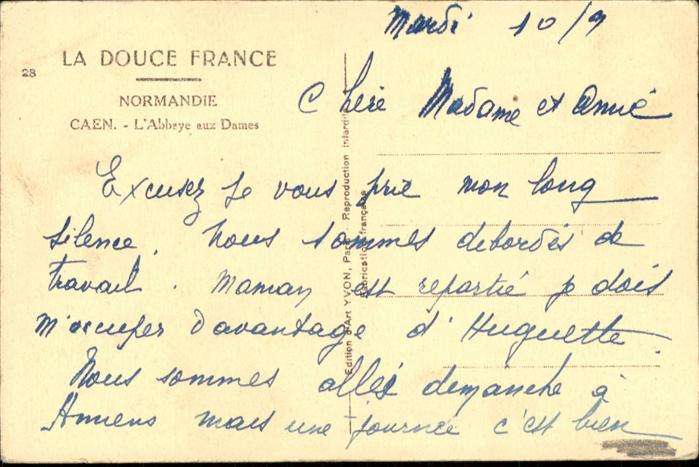 Mardi 10/9
28
LA DOUCE FRANCE
NORMANDIE
CAEN. - L'Abbaye aux Dames
Chère Madame et Amie
Edition d'Art YVON, Paris Reproduction interdite
Fabrication française
Excusez je vous prie mon long
silence. Nous sommes debordés de
travail. Maman est repartie p dois
m'occuper davantage d'Huguette
Nous sommes allés demanche à
Amiens mais une journée c'est bien